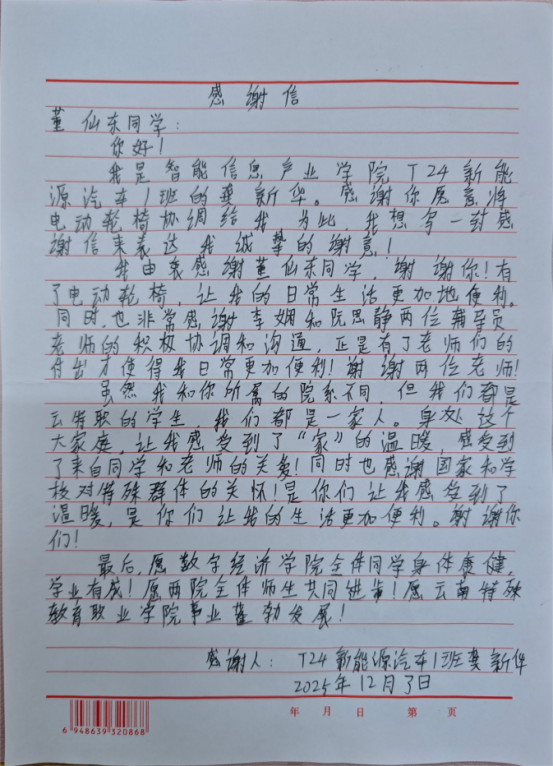 感谢信
董仙东同学：
你好！
我是智能信息产业学院T24新能
源汽车1班的龚新华。感谢你愿意将
电动轮椅协调给我，为此，我想写一封感
谢信来表达我诚挚的谢意！
我由衷感谢董仙东同学，谢谢你！有
了电动轮椅，让我的日常生活更加地便利。
同时，也非常感谢李娴和阮思静两位辅导员
老师的积极协调和沟通，正是有了老师们的
付出才使得我日常更加便利！谢谢两位老师！
虽然我和你所属的院系不同，但我们都是
云特职的学生，我们都是一家人。身处这个
大家庭，让我感受到了“家”的温暖，感受到
了来自同学和老师的关爱！同时也感谢国家和学
校对特殊群体的关怀！是你们让我感受到了
温暖，是你们让我的生活更加便利。谢谢你
们！
最后，愿数字经济学院全体同学身体康健，
学业有成！愿两院全体师生共同进步！愿云南特殊
教育职业学院事业蓬勃发展！
感谢人：T24新能源汽车1班龚新华
2025年12月3日
年 月 日 第 页
6 948639 320868